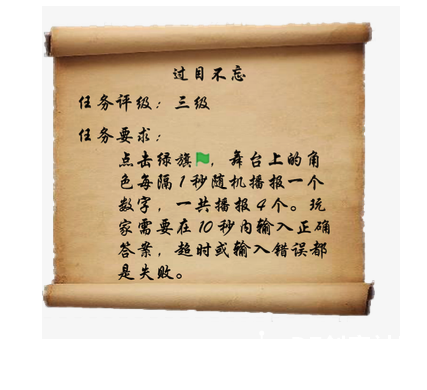 过目不忘
任务评级：三级
任务要求：
点击绿旗，舞台上的角
色每隔1秒随机播报一个
数字，一共播报4个。玩
家需要在10秒内输入正确
答案，超时或输入错误都
是失败。